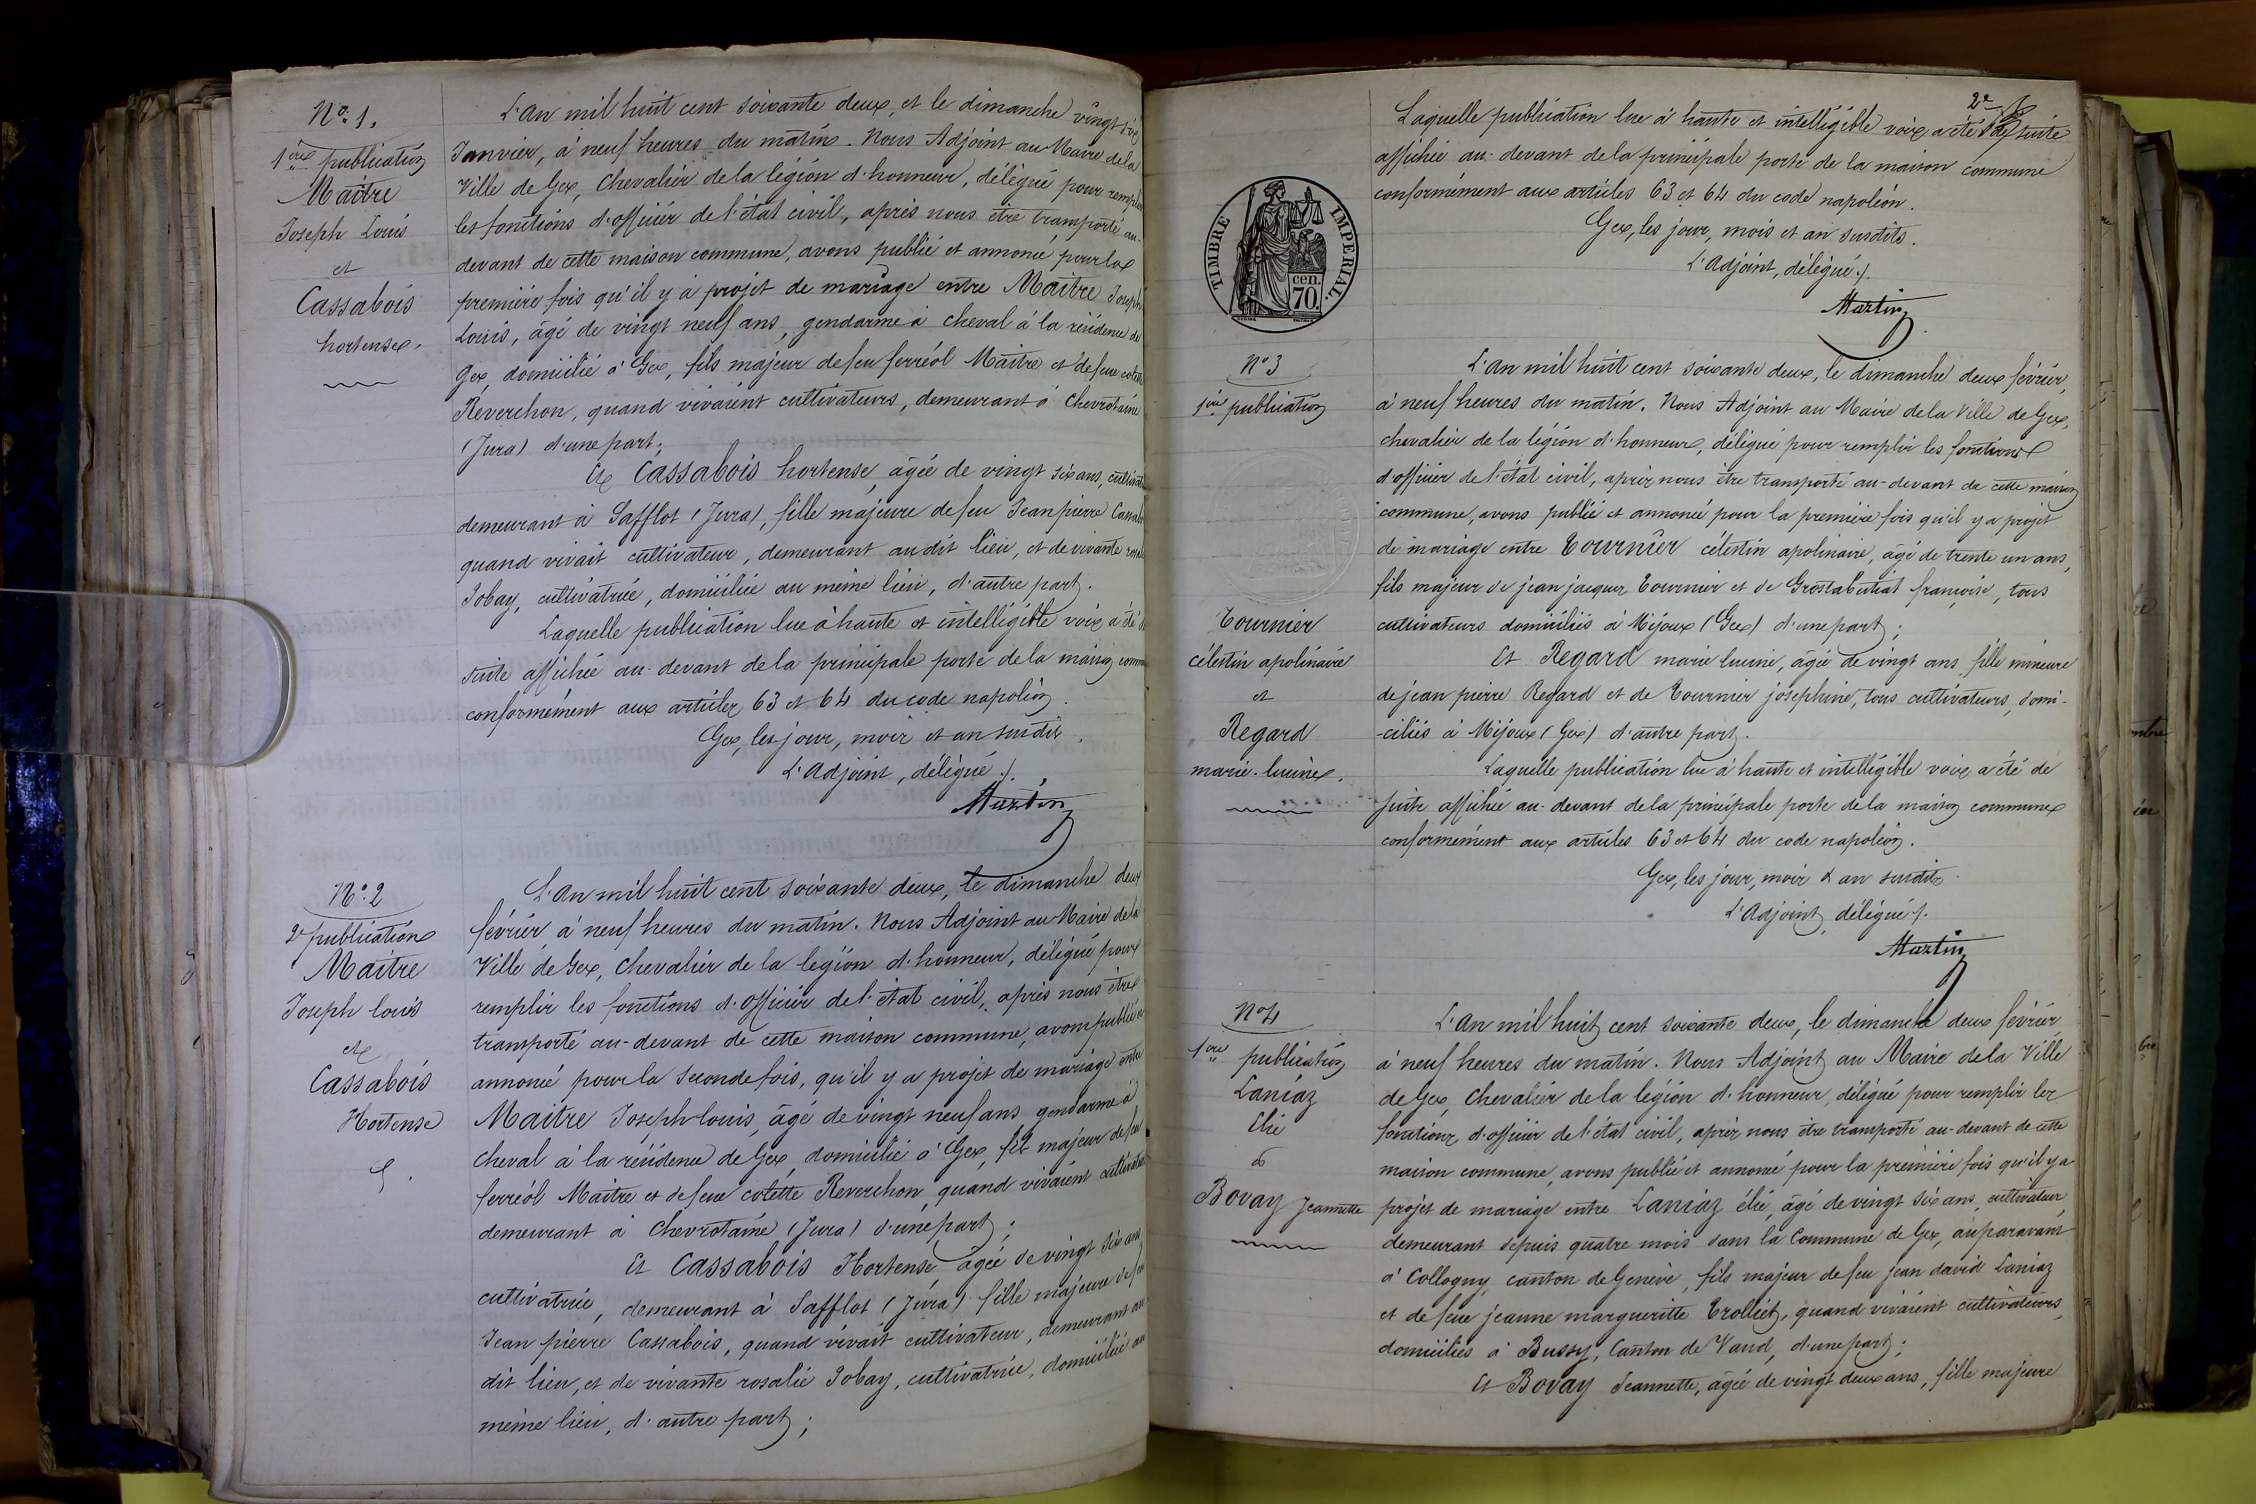 No. 1.
1ère publication
Maitre
Joseph Louis
et
Cassabois
hortense.
L'an mil huit cent soixante deux, et le dimanche vingt six
Janvier, à neuf heures du matin. Nous Adjoint au Maire de la
Ville de Gex, Chevalier de la légion d'honneur, délégué pour remplir
les fonctions d'officier de l'état civil, après nous être transporté au-
devant de cette maison commune, avons publié et annoncé, pour la
première fois qu'il y a projet de mariage entre Maitre Joseph
Louis, âgé de vingt neuf ans, gendarme à cheval à la résidence de
Gex, domicilié à Gex, fils majeur de feu ferréol Maitre et de feue colette
Reverchon, quand vivaient cultivateurs, demeurant à Chevrotaine
(Jura) d'une part;
Et Cassabois hortense, âgée de vingt six ans,
demeurant à Safflot (Jura), fille majeure de feu Jean pierre
quand vivait cultivateur, demeurant au dit lieu, et de vivante
Jobay, cultivatrice, domiciliée au même lieu, d'autre part.
Laquelle publication lue à haute et intelligible voix a été
suite affichée au-devant de la principale porte de la maison
conformément aux articles 63 et 64 du code napoléon.
Gex, les jour, mois et an susdits.
L'Adjoint, délégué ./.
Martin
No. 2
2e publication
Maitre
Joseph louis
et
Cassabois
Hortense
L'an mil huit cent soixante deux, le dimanche deux
février à neuf heures du matin. Nous Adjoint au Maire de la
Ville de Gex, Chevalier de la légion d'honneur, délégué pour
remplir les fonctions d'officier de l'état civil, après nous être
transporté au-devant de cette maison commune, avons publié et
annoncé pour la seconde fois, qu'il y a projet de mariage entre
Maitre Joseph-louis, âgé de vingt neuf ans gendarme à
cheval à la résidence de Gex, domicilié à Gex, fils majeur de feu
ferréol Maitre et de feue colette Reverchon, quand vivaient cultivateurs
demeurant à Chevrotaine (Jura) d'une part;
Et Cassabois Hortense âgée de vingt six ans
cultivatrice, demeurant à Safflot (Jura) fille majeure de feu
Jean pierre Cassabois, quand vivait cultivateur, demeurant au
dit lieu, et de vivante rosalie Jobay, cultivatrice, domiciliée au
même lieu, d'autre part;
2e
Laquelle publication lue à haute et intelligible voix a été de suite
affichée au-devant de la principale porte de la maison commune
conformément aux articles 63 et 64 du code napoléon.
Gex, les jour, mois et an susdits.
L'Adjoint, délégué ./.
Martin
TIMBRE IMPERIAL.
cen.
70.
No 3
1ère publication
Tournier
célestin apolinaire
et
Regard
marie-lucine.
L'an mil huit cent soixante deux, le dimanche deux février,
à neuf heures du matin. Nous Adjoint au Maire de la Ville de Gex,
chevalier de la légion d'honneur, délégué pour remplir les fonctions
d'officier de l'état civil, après nous être transporté au-devant de cette maison
commune, avons publié et annoncé pour la première fois qu'il y a projet
de mariage entre Tournier célestin apolinaire, âgé de trente un ans,
fils majeur de jean jacques Tournier et de Grostabutiat françoise, tous
cultivateurs domiciliés à Mijoux (Gex) d'une part;
Et Regard marie lucine, âgée de vingt ans fille mineure
de jean pierre Regard et de Tournier joséphine, tous cultivateurs, domi-
-ciliés à Mijoux (Gex) d'autre part.
Laquelle publication lue à haute et intelligible voix a été de
suite affichée au-devant de la principale porte de la maison commune
conformément aux articles 63 et 64 du code napoléon.
Gex, les jour, mois & an susdits.
L'Adjoint, délégué ./.
Martin
No 4
1ère publication
Laniaz
Elie
&
Bovay Jeannette
L'an mil huit cent soixante deux, le dimanche deux février
à neuf heures du matin. Nous Adjoint au Maire de la Ville
de Gex, Chevalier de la légion d'honneur, délégué pour remplir les
fonctions d'officier de l'état civil, après nous être transporté au-devant de cette
maison commune, avons publié et annoncé pour la première fois qu'il y a
projet de mariage entre Laniaz élie, âgé de vingt six ans, cultivateur,
demeurant depuis quatre mois dans la Commune de Gex, auparavant
à Cologny, canton de Genève, fils majeur de feu jean david Laniaz
et de feue jeanne margueritte Trolliet, quand vivaient cultivateurs,
domiciliés à Bussy, Canton de Vaud, d'une part;
Et Bovay Jeannette, âgée de vingt deux ans, fille majeure